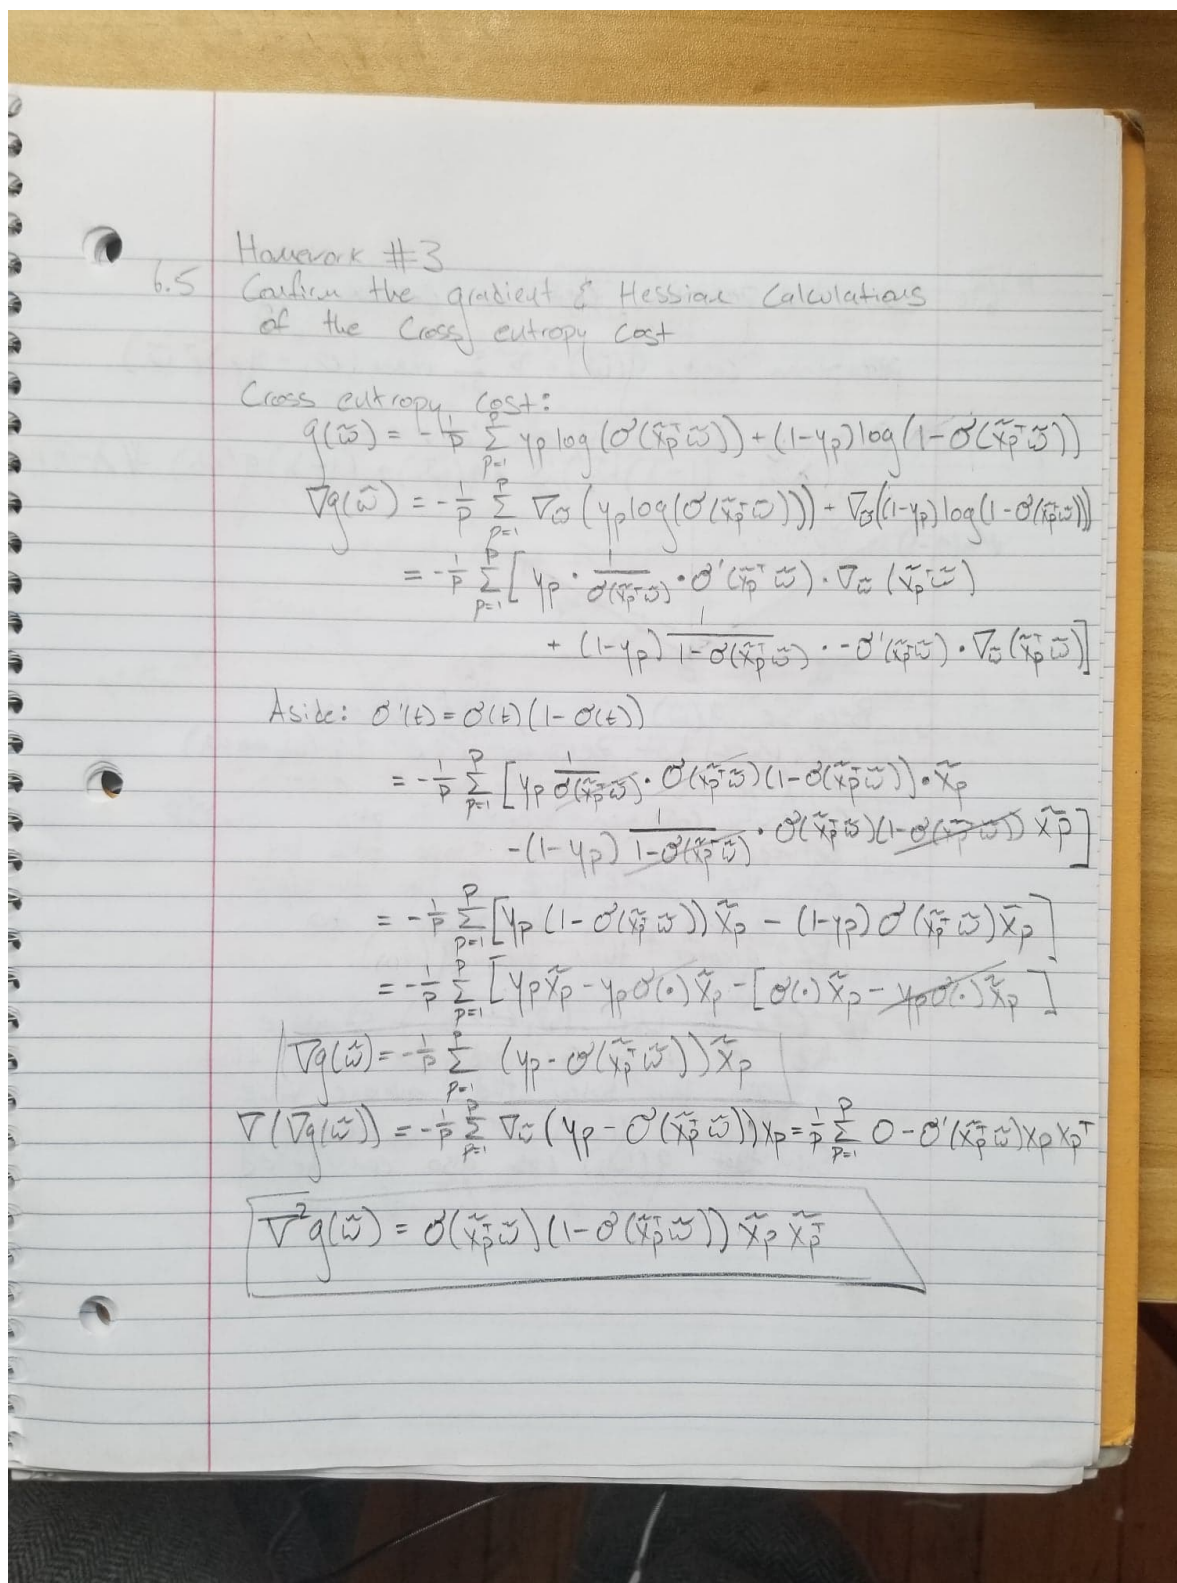 Homework #3
6.5 Confirm the gradient & Hessian Calculations
of the Cross entropy Cost
Cross entropy cost:
g(w̃) = -1/P Σ_{p=1}^{P} yp log(σ(x̃pᵀw̃)) + (1-yp) log(1-σ(x̃pᵀw̃))
∇g(w̃) = -1/P Σ_{p=1}^{P} ∇w̃(yp log(σ(x̃pᵀw̃))) + ∇w̃((1-yp) log(1-σ(x̃pᵀw̃)))
= -1/P Σ_{p=1}^{P} [yp · 1/σ(x̃pᵀw̃) · σ'(x̃pᵀw̃) · ∇w̃(x̃pᵀw̃)
+ (1-yp) 1/(1-σ(x̃pᵀw̃)) · -σ'(x̃pᵀw̃) · ∇w̃(x̃pᵀw̃)]
Aside: σ'(t) = σ(t)(1-σ(t))
= -1/P Σ_{p=1}^{P} [yp 1/σ(x̃pᵀw̃) · σ(x̃pᵀw̃)(1-σ(x̃pᵀw̃)) · x̃p
-(1-yp) 1/(1-σ(x̃pᵀw̃)) · σ(x̃pᵀw̃)(1-σ(x̃pᵀw̃)) x̃p]
= -1/P Σ_{p=1}^{P} [yp(1-σ(x̃pᵀw̃))x̃p - (1-yp)σ(x̃pᵀw̃)x̃p]
= -1/P Σ_{p=1}^{P} [ypx̃p - ypσ(·)x̃p - [σ(·)x̃p - ypσ(·)x̃p]
∇g(w̃) = -1/P Σ_{p=1}^{P} (yp - σ(x̃pᵀw̃))x̃p
∇(∇g(w̃)) = -1/P Σ_{p=1}^{P} ∇w̃(yp - σ(x̃pᵀw̃))xp = 1/P Σ_{p=1}^{P} 0 - σ'(x̃pᵀw̃)xpxpᵀ
∇²g(w̃) = σ(x̃pᵀw̃)(1-σ(x̃pᵀw̃)) x̃p x̃pᵀ